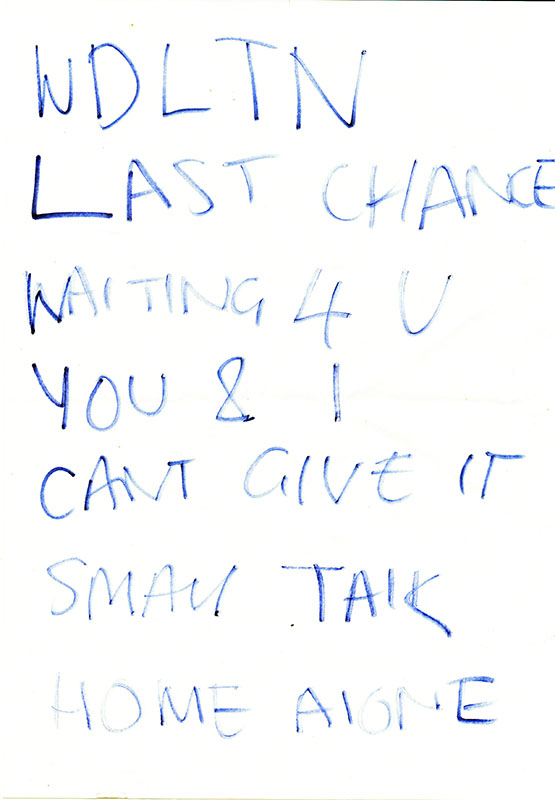 WDLTN
LAST CHANCE
WAITING 4 U
YOU & I
CANT GIVE IT
SMALL TALK
HOME ALONE